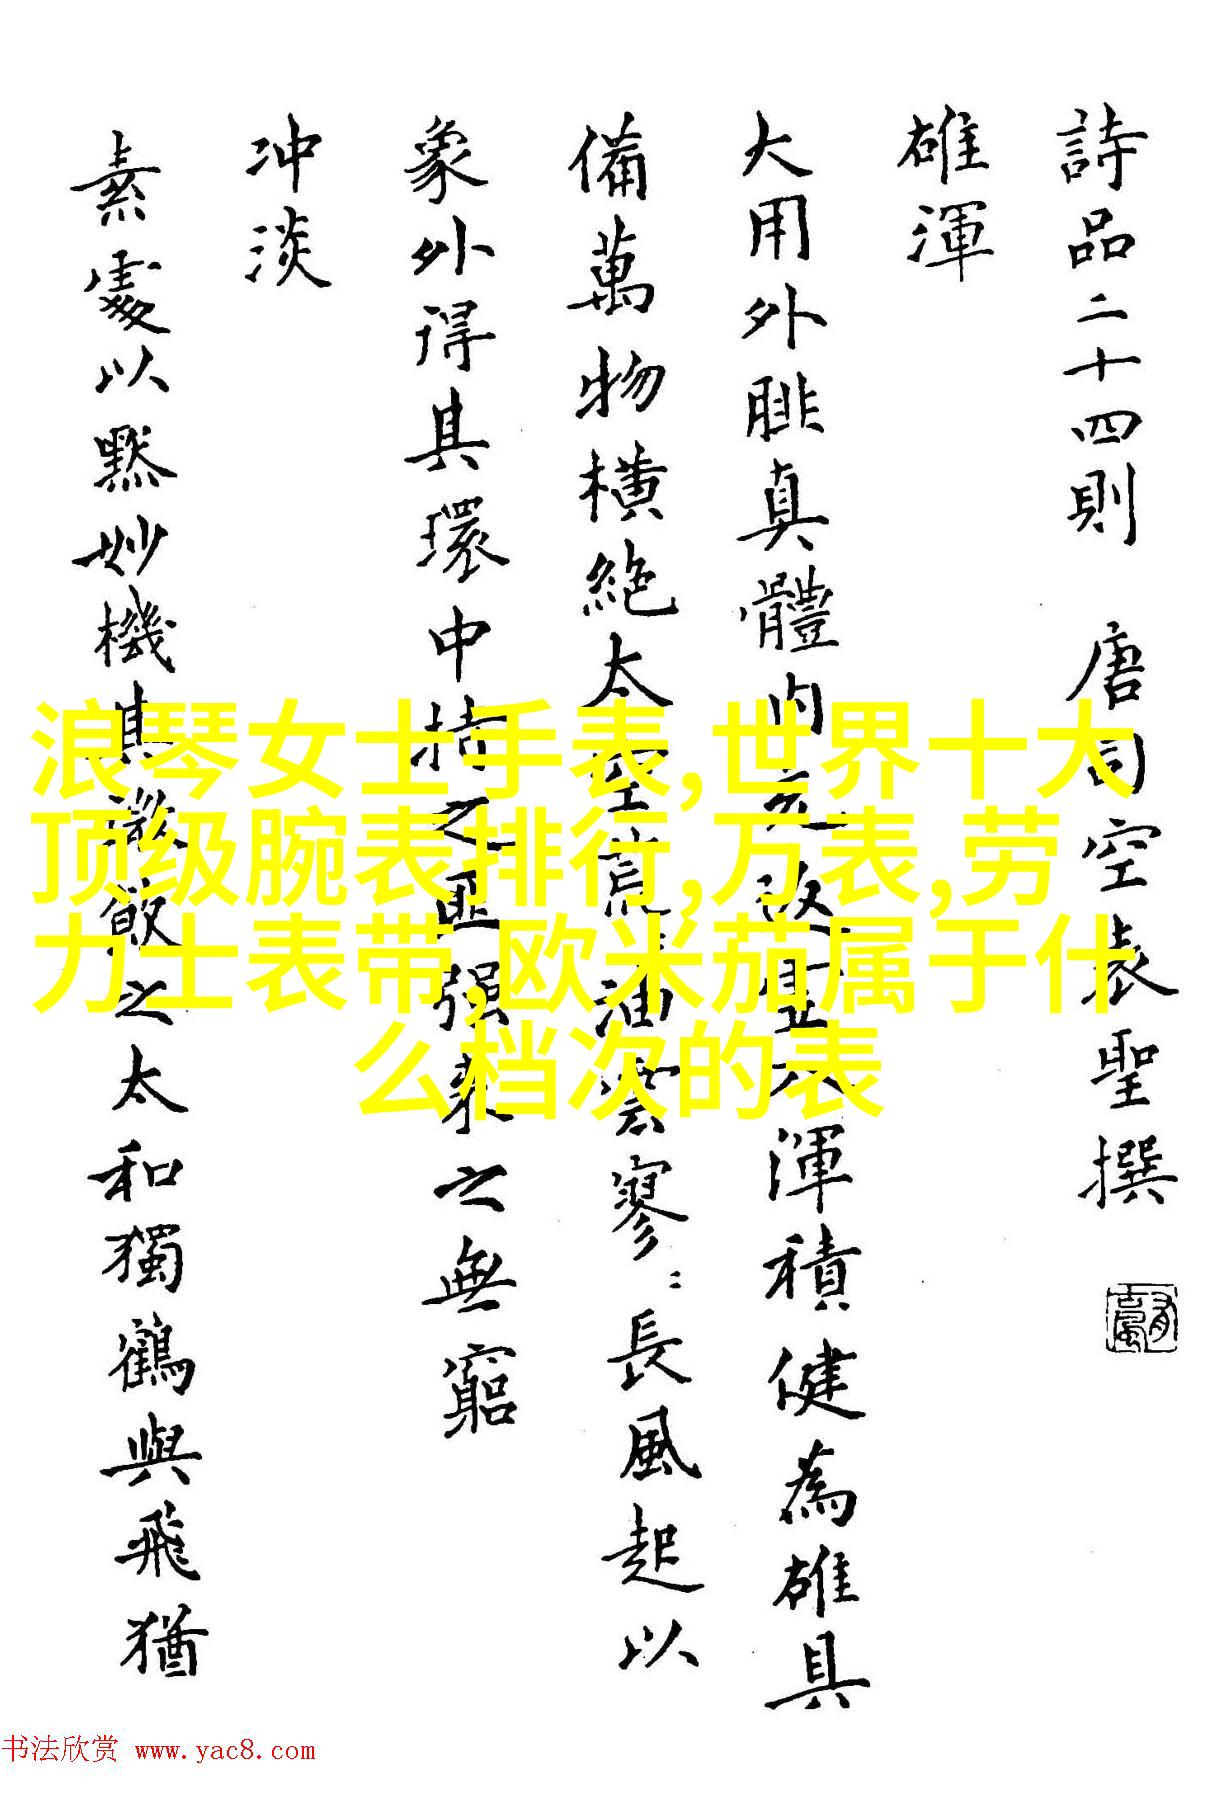 詩品二十四則 唐司空表聖撰
雄渾
大用外腓真體内充返虛入渾積健為雄具
備萬物橫絕太空荒〻油雲寥〻長風起以
象外得其環中持之匪强來之無窮
冲淡
素處以默妙機其微飲之太和獨鶴與飛猶
浪琴女士手表,世界十大
顶级腕表排行,万表,劳
力士表带,欧米茄属于什
么档次的表
书法欣赏 www.yac8.com